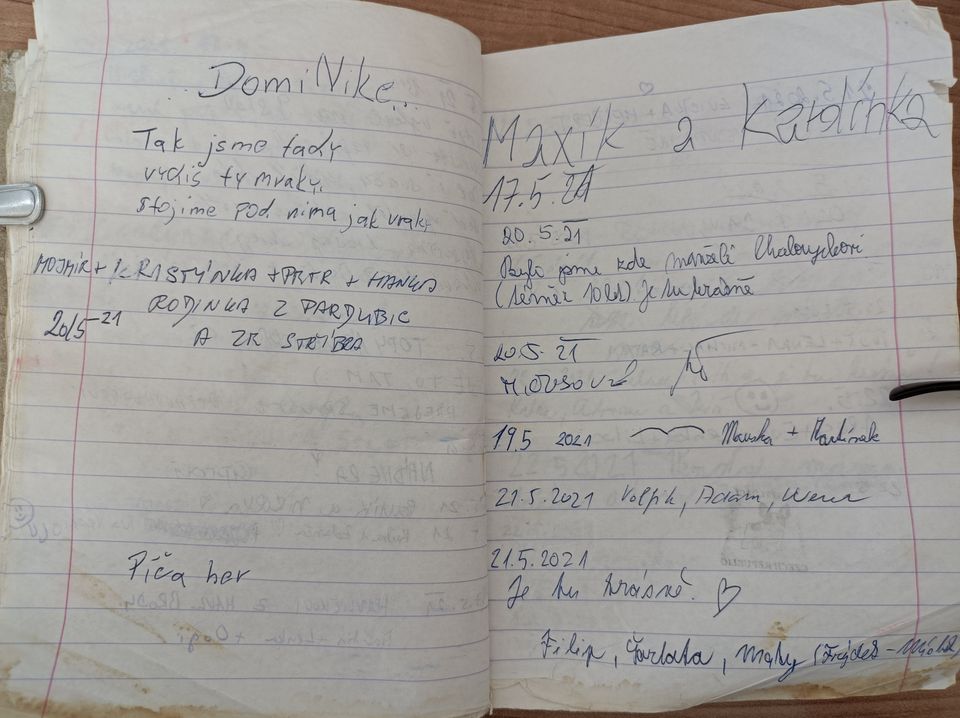 DomiNike...
Tak jsme tady
vydiš ty mraky,
stojíme pod nima jak vraky
MOJMÍR + KRISTÝNKA + PETR + HANKA
RODINKA Z PARDUBIC
20/5-21
A ZE STŘÍBRA
Píča her
Maxík a Karolínka
17.5.21
20.5.21
Byli jsme zde manželé
(téměř 10 let) je tu krásně
20.5.21
19.5 2021 + Martínek
21.5.2021 Volfík, Adam,
21.5.2021
Je tu krásně. ♡
Filip, Šarlota, Maty